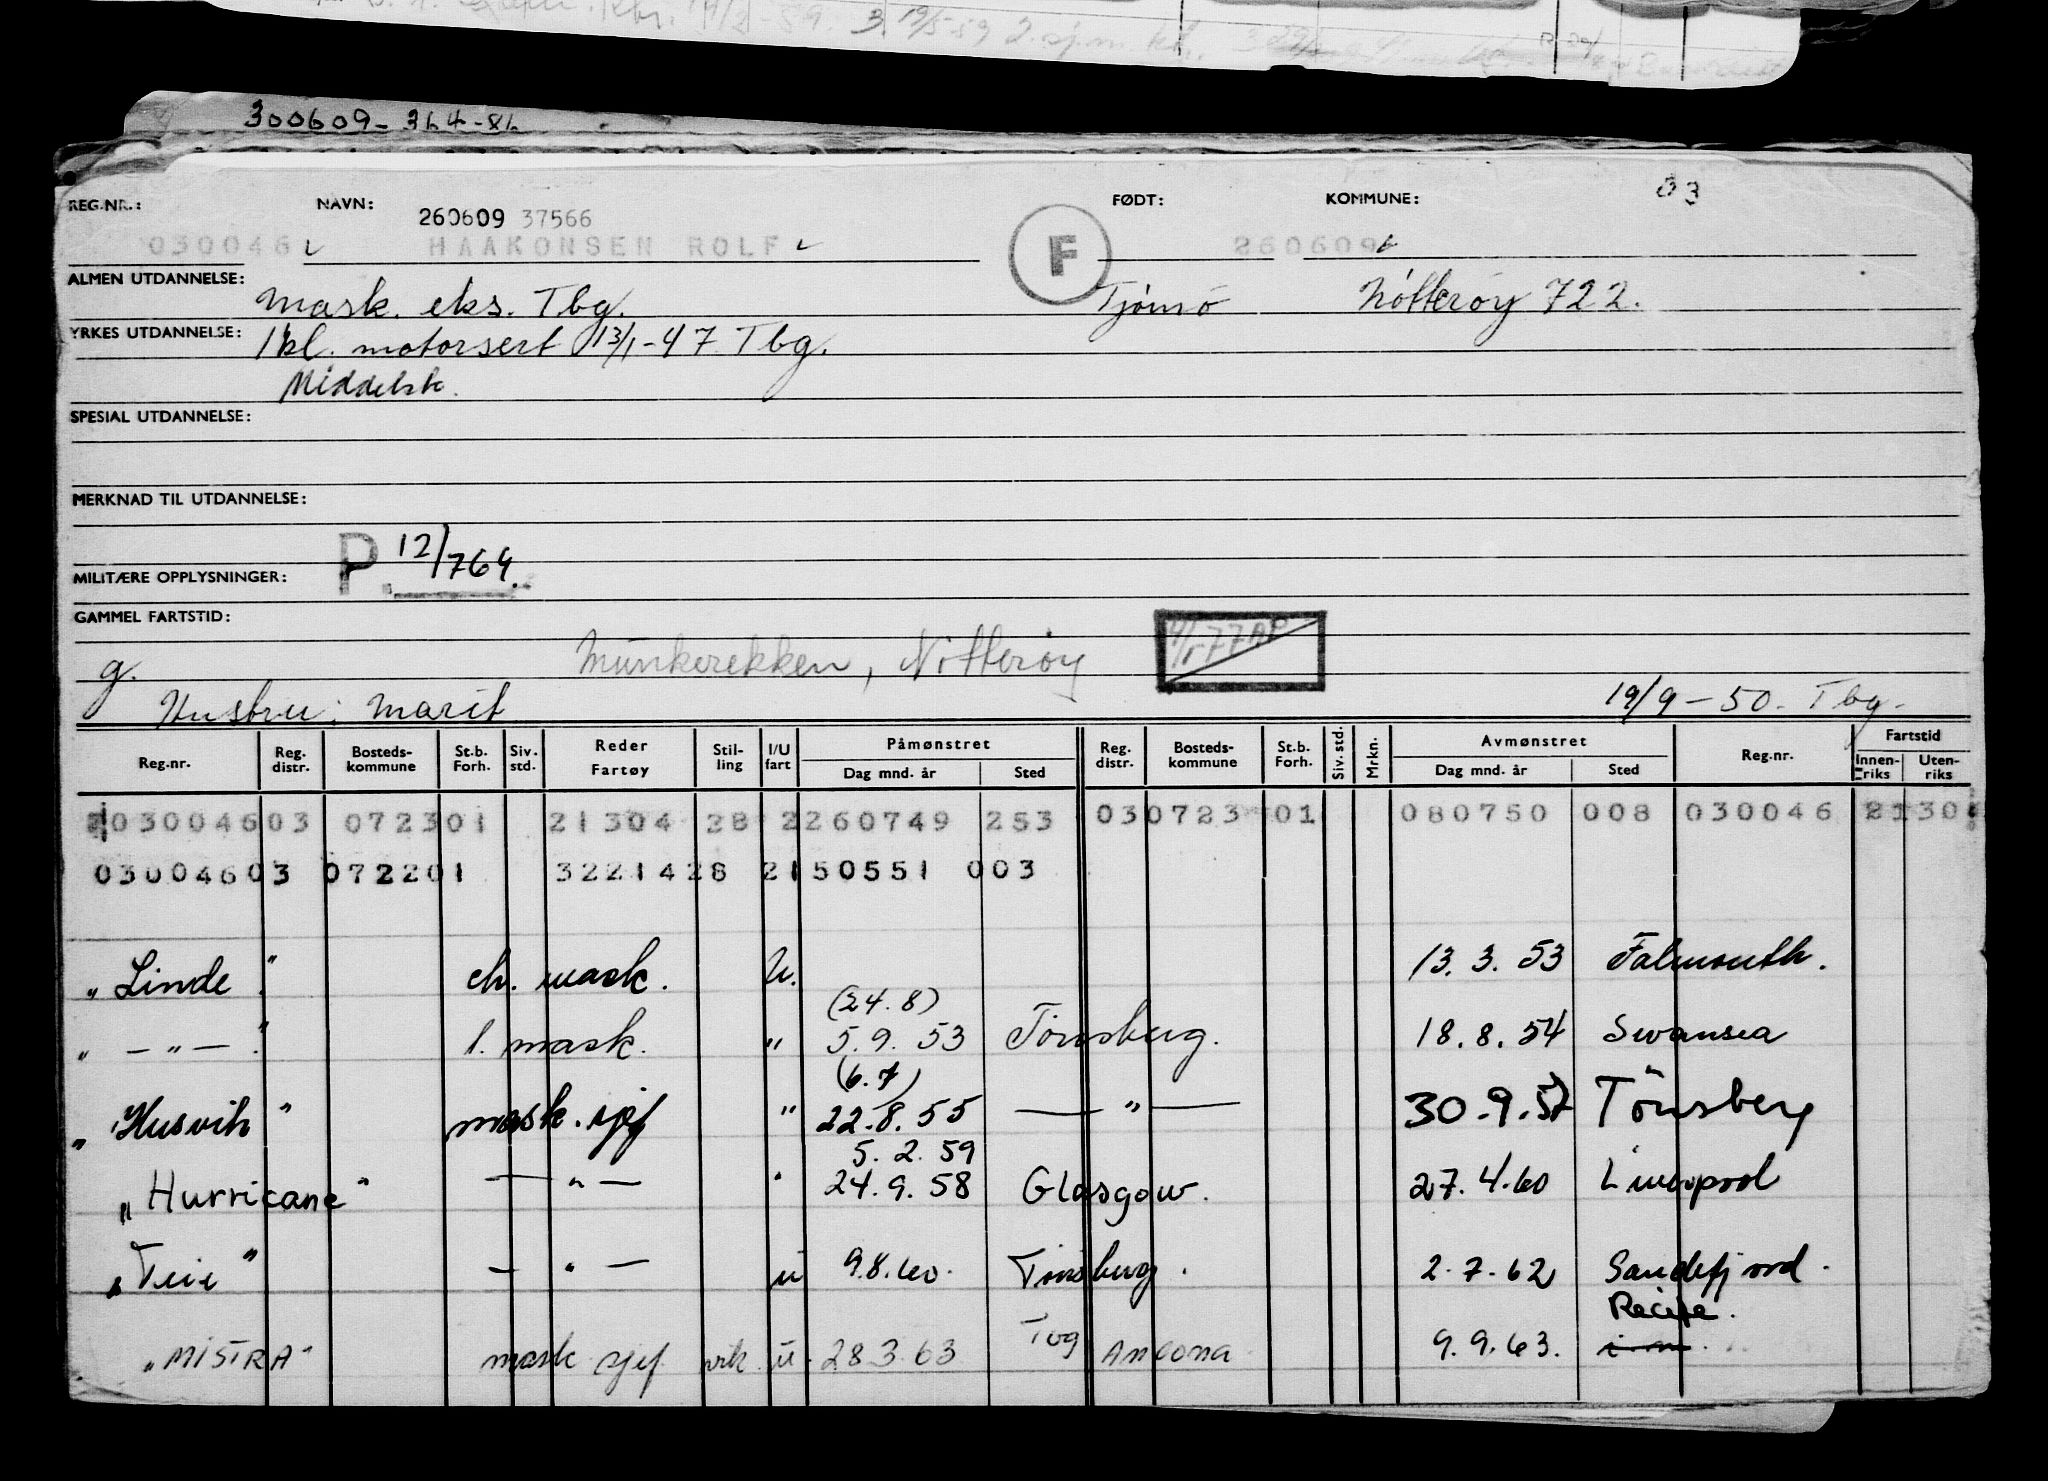 300609-364-86
REG.NR.: NAVN: FØDT: KOMMUNE: 03
260609 37566
030046 HAAKONSEN ROLF F 260609
ALMEN UTDANNELSE: Mask. eks. Tbg. Tjømö Nötterøy 722.
YRKES UTDANNELSE: 1 kl. motorsert 13/1-47 Tbg.
Middelsk.
SPESIAL UTDANNELSE:
MERKNAD TIL UTDANNELSE:
MILITÆRE OPPLYSNINGER: P. 12/764.
GAMMEL FARTSTID:
g. Munkerekken, Nötterøy
Hustru: Marit 19/9-50. Tbg.
Reg.nr. Reg. distr. Bosteds- kommune St.b. Forh. Siv. std. Reder Fartøy Stil- ling I/U fart Påmønstret Dag mnd. år Sted Reg. distr. Bosteds- kommune St.b. Forh. Siv. std. Mrkn. Avmønstret Dag mnd. år Sted Reg.nr. Fartstid Innen- riks Uten- riks
03004603 072301 21304 28 2260749 253 030723 01 080750 008 030046
03004603 072201 3221428 2150551 003
"Linde" ch. mask. U. 13. 3. 53 Falmouth.
(24. 8)
" — " — " 1. mask. " 5. 9. 53 Tönsberg. 18. 8. 54 Swansea
(6. 7)
"Husvik" mask. sjef " 22. 8. 55 — " — 30. 9. 57 Tönsberg
5. 2. 59
"Hurricane" — " — " 24. 9. 58 Glasgow. 27. 4. 60 Liverpool
"Teie" — " — u 9.8.60. Tönsberg. 2. 7. 62 Sandefjord.
Recife.
"MISTRA" mask sjef vik. u. 28 3. 63 Tbg Ancona 9. 9. 63.